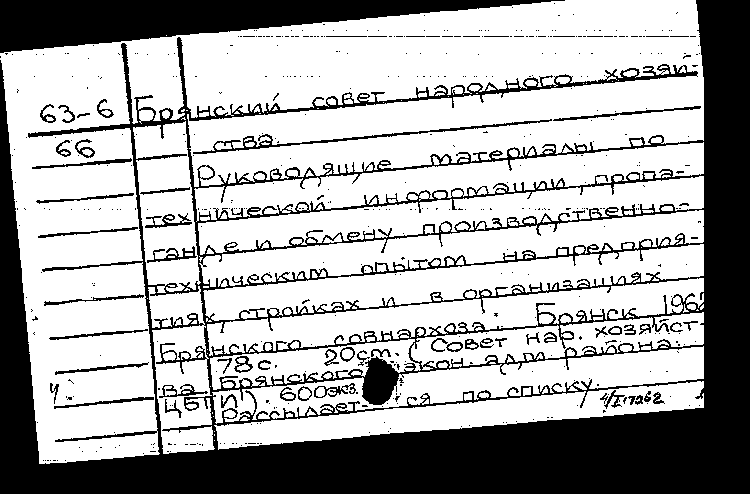 63-6 Брянский совет народного хозяй-
66 ства.
Руководящие материалы по
технической информации, пропа-
ганде и обмену производственно-
техническим опытом на предприя-
тиях, стройках и в организациях
Брянского совнархоза. Брянск, 196
78 с. 20 см. (Совет нар. хозяйст-
ва Брянского экон. адм района.
ЦБТИ). 600 экз.
Рассылает- ся по списку.